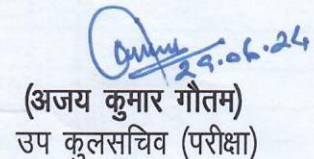 29.06.24
(अजय कुमार गौतम)
उप कुलसचिव (परीक्षा)